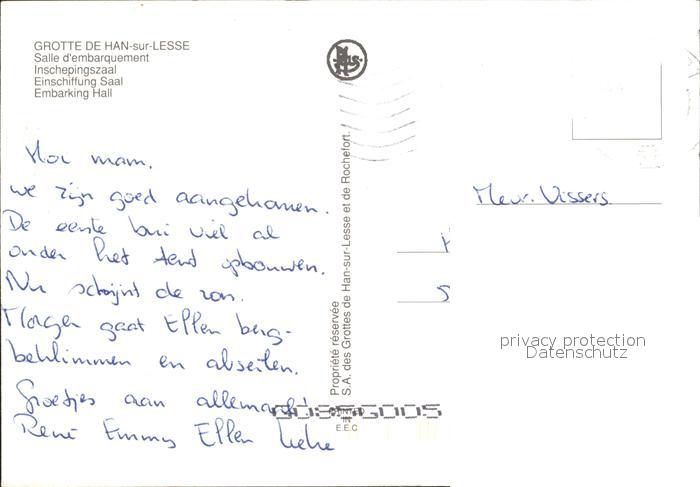 GROTTE DE HAN-sur-LESSE
Salle d'embarquement
Inschepingszaal
Einschiffung Saal
Embarking Hall
Hoi mam,
we zijn goed aangekomen.
De eerste bui viel al
onder het tent opbouwen.
Nu schijnt de zon.
Morgen gaat Ellen berg-
beklimmen en abseilen.
Groetjes aan allemaal!
René Emmy Ellen
Propriété réservée
S.A. des Grottes de Han-sur-Lesse et de Rochefort.
IN
E.E.C
Mevr. Vissers
privacy protection
Datenschutz